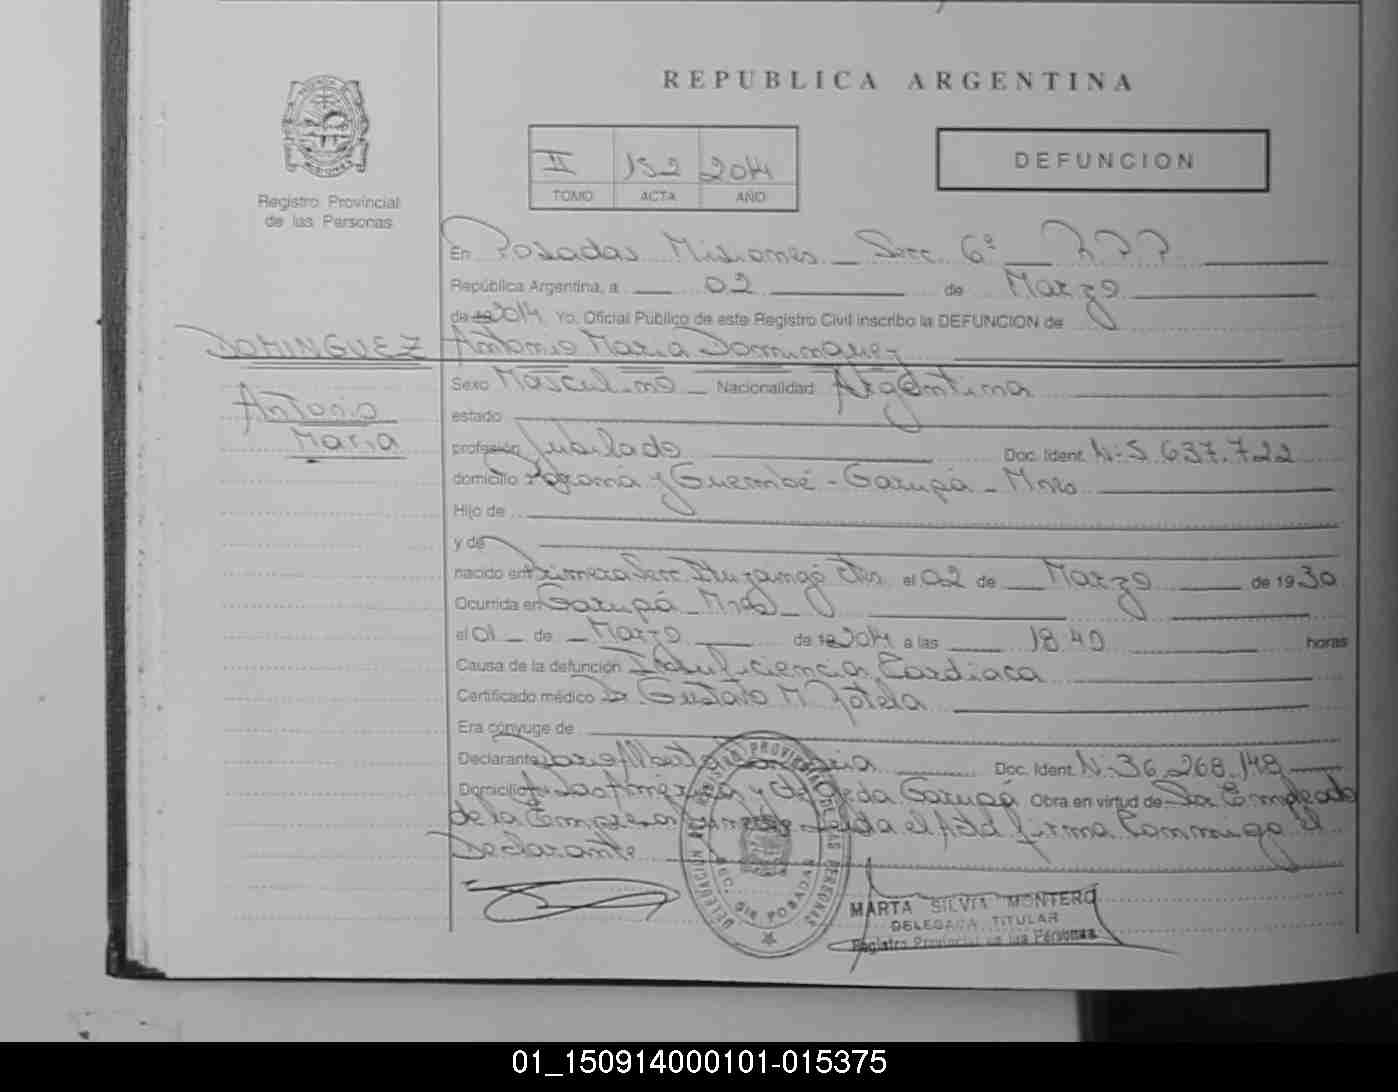 REPUBLICA ARGENTINA
II 152 2014
TOMO ACTA AÑO
DEFUNCION
Registro Provincial
de las Personas
En Posadas Misiones Secc. 6ª R P P
República Argentina, a 02 de Marzo
de 19 2014 Yo, Oficial Público de este Registro Civil inscribo la DEFUNCION de
DOMINGUEZ
Antonio
Maria
Antonio Maria Dominguez
Sexo Masculino Nacionalidad Argentina
estado
profesión Jubilado Doc. Ident. Nº 5.637.722
domicilio y Guembé - Garupá - Mnes
Hijo de
y de
nacido en Primera Secc. Ituzaingó Ctes. el 02 de Marzo de 1930
Ocurrida en Garupá - Mnes
el 01 de Marzo de 19 2014 a las 18:40 horas
Causa de la defunción Insuficiencia Cardiaca
Certificado médico Dr. Gustavo M. Sotelo
Era cónyuge de
Declarante Alberto Doc. Ident. Nº 36.268.148
Domicilio Av Las Américas y Garupá Obra en virtud de Ser Empleado
de la Empresa Leida el Acta firma Conmigo el
Declarante
REGISTRO PROVINCIAL DE LAS PERSONAS
DELEGACION SEC. 6ta POSADAS
MARTA SILVIA MONTERO
DELEGADA TITULAR
Registro Provincial de las Personas
01_150914000101-015375